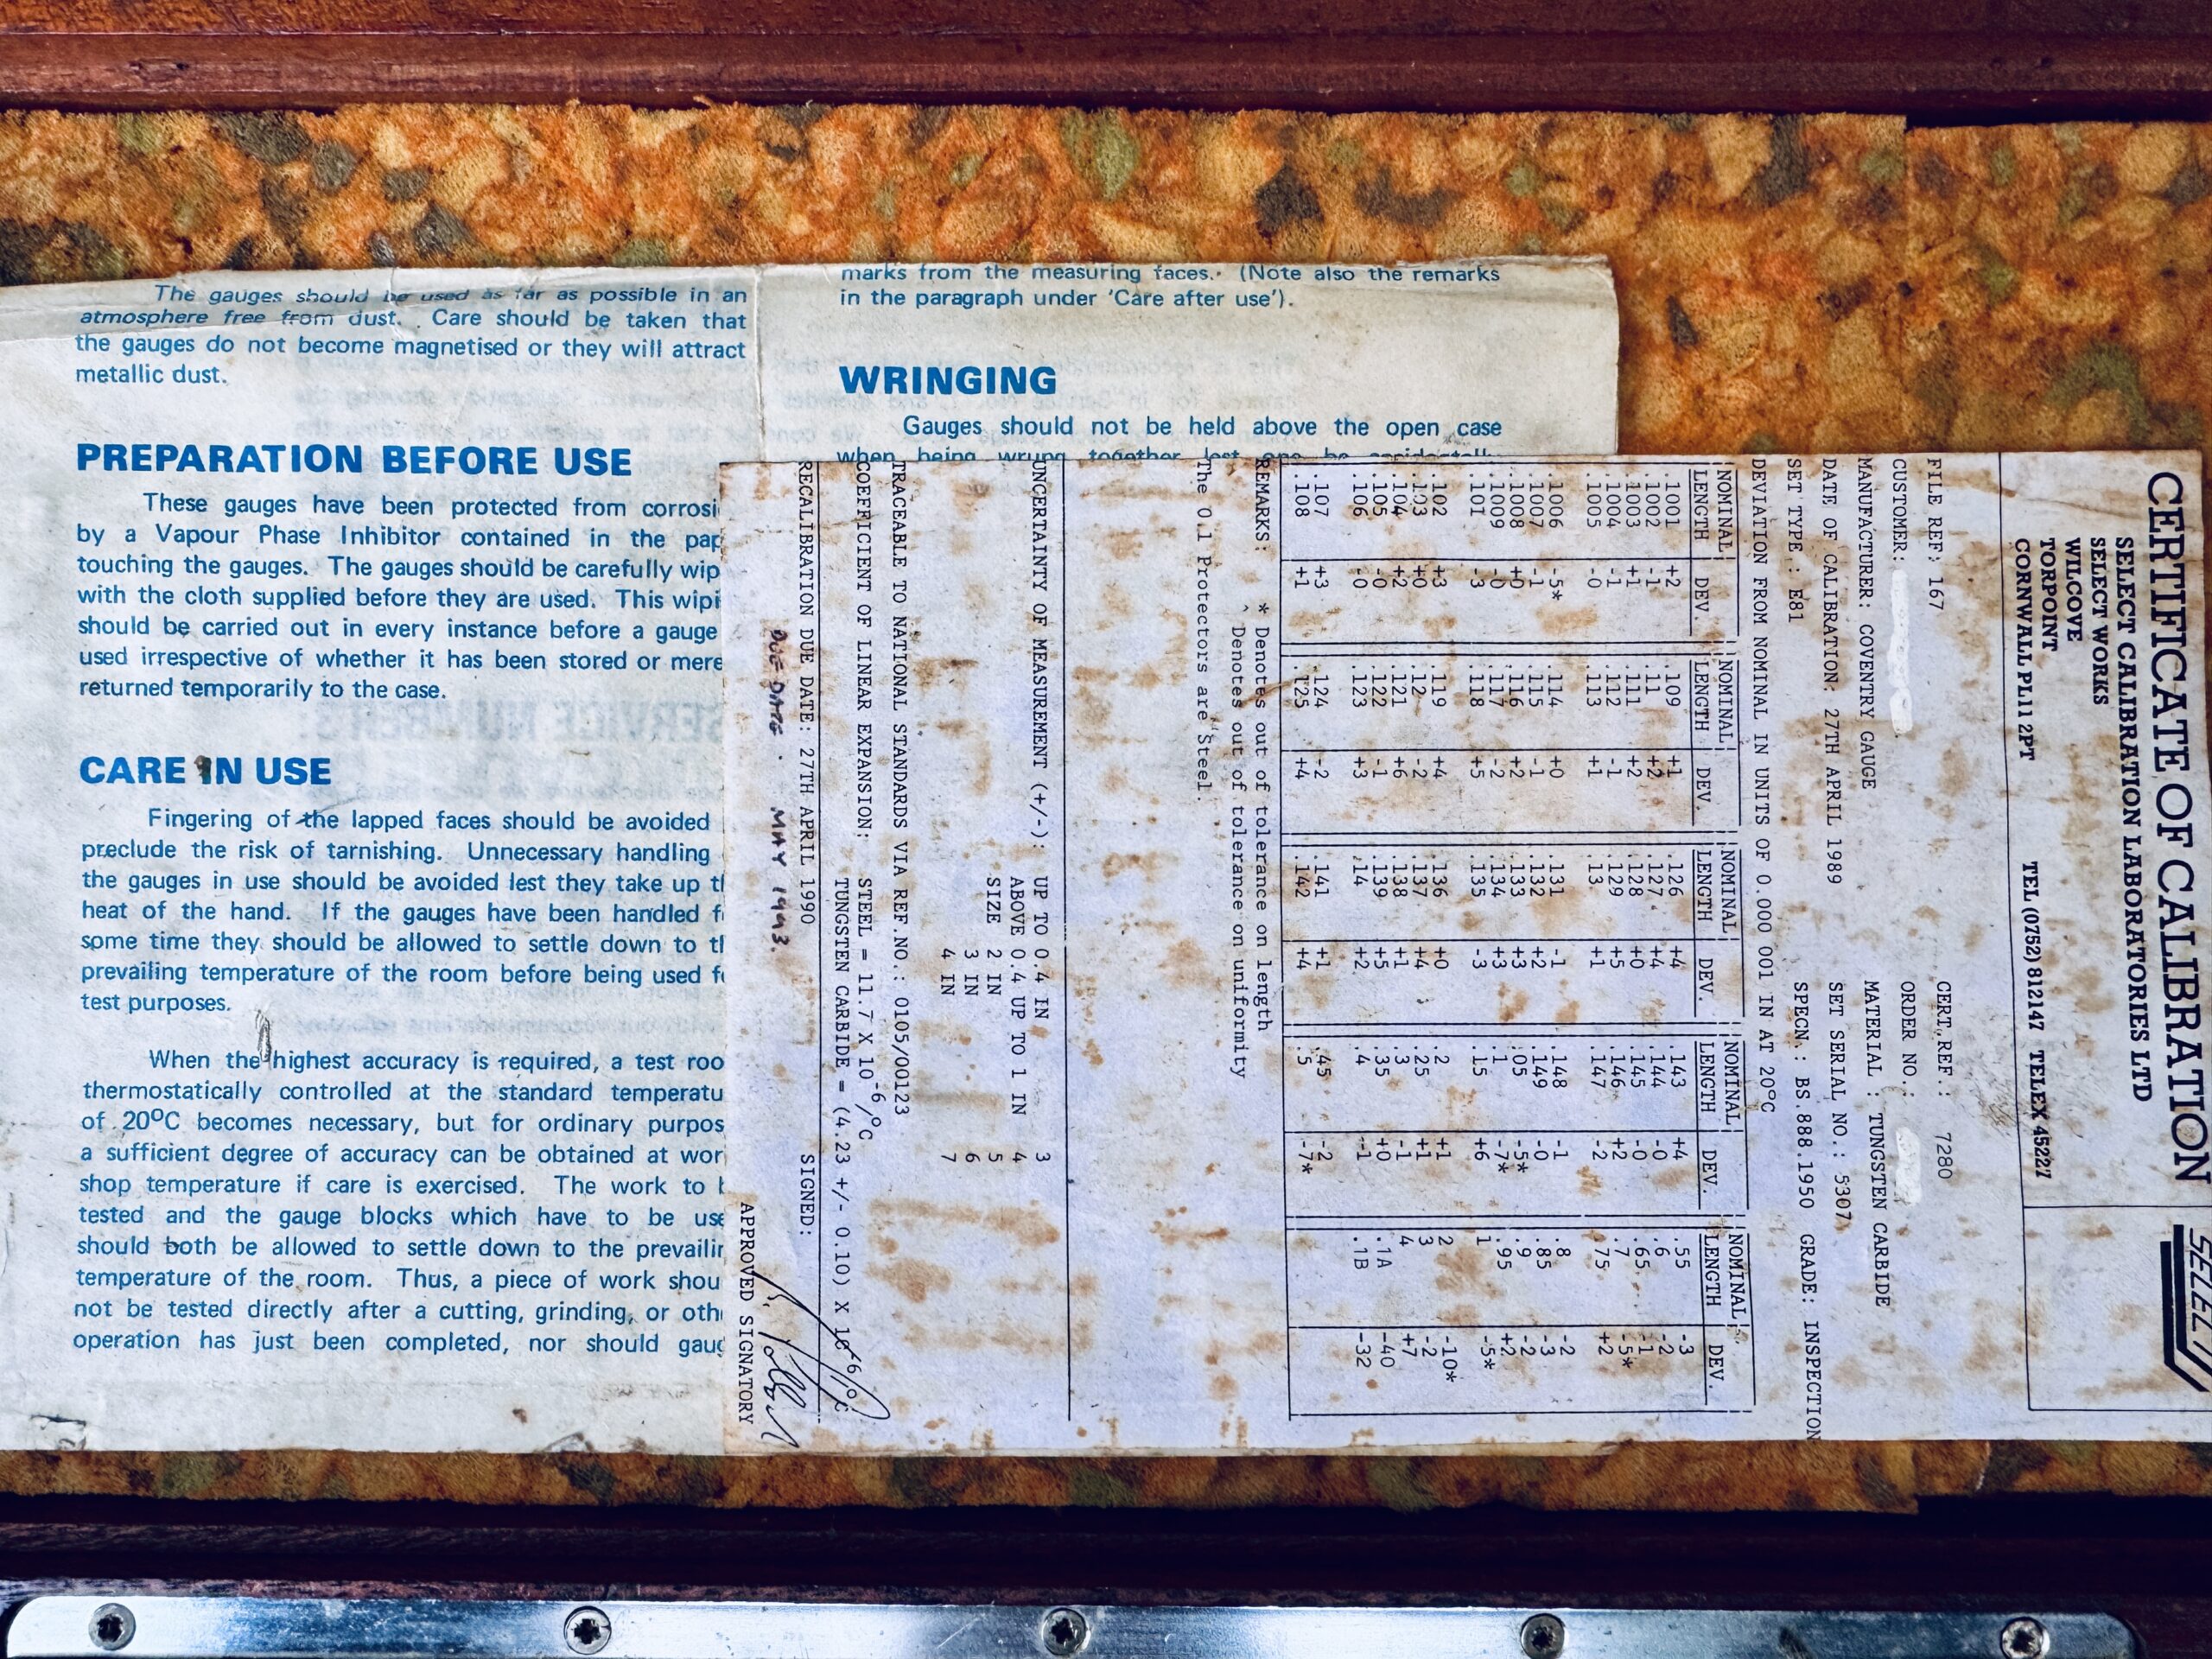 The gauges should be used as far as possible in an
atmosphere free from dust. Care should be taken that
the gauges do not become magnetised or they will attract
metallic dust.
PREPARATION BEFORE USE
These gauges have been protected from corrosi
by a Vapour Phase Inhibitor contained in the pap
touching the gauges. The gauges should be carefully wip
with the cloth supplied before they are used. This wipi
should be carried out in every instance before a gauge
used irrespective of whether it has been stored or mere
returned temporarily to the case.
CARE IN USE
Fingering of the lapped faces should be avoided
preclude the risk of tarnishing. Unnecessary handling
the gauges in use should be avoided lest they take up th
heat of the hand. If the gauges have been handled f
some time they should be allowed to settle down to th
prevailing temperature of the room before being used fo
test purposes.
When the highest accuracy is required, a test roo
thermostatically controlled at the standard temperatu
of 20°C becomes necessary, but for ordinary purpos
a sufficient degree of accuracy can be obtained at wor
shop temperature if care is exercised. The work to b
tested and the gauge blocks which have to be use
should both be allowed to settle down to the prevailin
temperature of the room. Thus, a piece of work shou
not be tested directly after a cutting, grinding, or othe
operation has just been completed, nor should gaug
marks from the measuring faces. (Note also the remarks
in the paragraph under 'Care after use').
WRINGING
Gauges should not be held above the open case
when being wrung together lest one be accidentally
CERTIFICATE OF CALIBRATION
SELECT CALIBRATION LABORATORIES LTD
SELECT WORKS
WILCOVE
TORPOINT
CORNWALL PL11 2PT TEL (0752) 812147 TELEX 45227
SELECT
FILE REF: 167 CERT.REF.: 7280
CUSTOMER: ORDER NO.:
MANUFACTURER: COVENTRY GAUGE MATERIAL : TUNGSTEN CARBIDE
DATE OF CALIBRATION: 27TH APRIL 1989 SET SERIAL NO.: 5307
SET TYPE : E81 SPECN.: BS.888.1950 GRADE: INSPECTION
DEVIATION FROM NOMINAL IN UNITS OF 0.000 001 IN AT 20°C
NOMINAL NOMINAL NOMINAL NOMINAL NOMINAL
LENGTH DEV. LENGTH DEV. LENGTH DEV. LENGTH DEV. LENGTH DEV.
.1001 +2 .109 +1 .126 +4 .143 +4 .55 -3
.1002 -1 .11 +2 .127 +4 .144 -0 .6 -2
.1003 +1 .111 +2 .128 +0 .145 -0 .65 -1
.1004 -1 .112 -1 .129 +5 .146 +2 .7 -5*
.1005 -0 .113 +1 .13 +1 .147 -2 .75 +2
.1006 -5* .114 +0 .131 -1 .148 -1 .8 -2
.1007 -1 .115 -1 .132 +2 .149 -0 .85 -3
.1008 +0 .116 +2 .133 +3 .05 -5* .9 -2
.1009 -0 .117 -2 .134 +3 .1 -7* .95 +2
.101 -3 .118 +5 .135 -3 .15 +6 1 -5*
.102 +3 .119 +4 .136 +0 .2 +1 2 -10*
.103 +0 .12 -2 .137 +4 .25 +1 3 -2
.104 +2 .121 +6 .138 +1 .3 -1 4 +7
.105 -0 .122 -1 .139 +5 .35 +0 .1A -40
.106 -0 .123 +3 .14 +2 .4 -1 .1B -32
.107 +3 .124 -2 .141 +1 .45 -2
.108 +1 .125 +4 .142 +4 .5 -7*
REMARKS: * Denotes out of tolerance on length
^ Denotes out of tolerance on uniformity
The 0.1 Protectors are Steel.
UNCERTAINTY OF MEASUREMENT (+/-): UP TO 0.4 IN 3
ABOVE 0.4 UP TO 1 IN 4
SIZE 2 IN 5
3 IN 6
4 IN 7
TRACEABLE TO NATIONAL STANDARDS VIA REF.NO.: 0105/00123
COEFFICIENT OF LINEAR EXPANSION: STEEL = 11.7 X 10-6/°C
TUNGSTEN CARBIDE = (4.23 +/- 0.10) X 10-6/°C
RECALIBRATION DUE DATE: 27TH APRIL 1990 SIGNED:
DUE DATE. MAY 1993.
APPROVED SIGNATORY